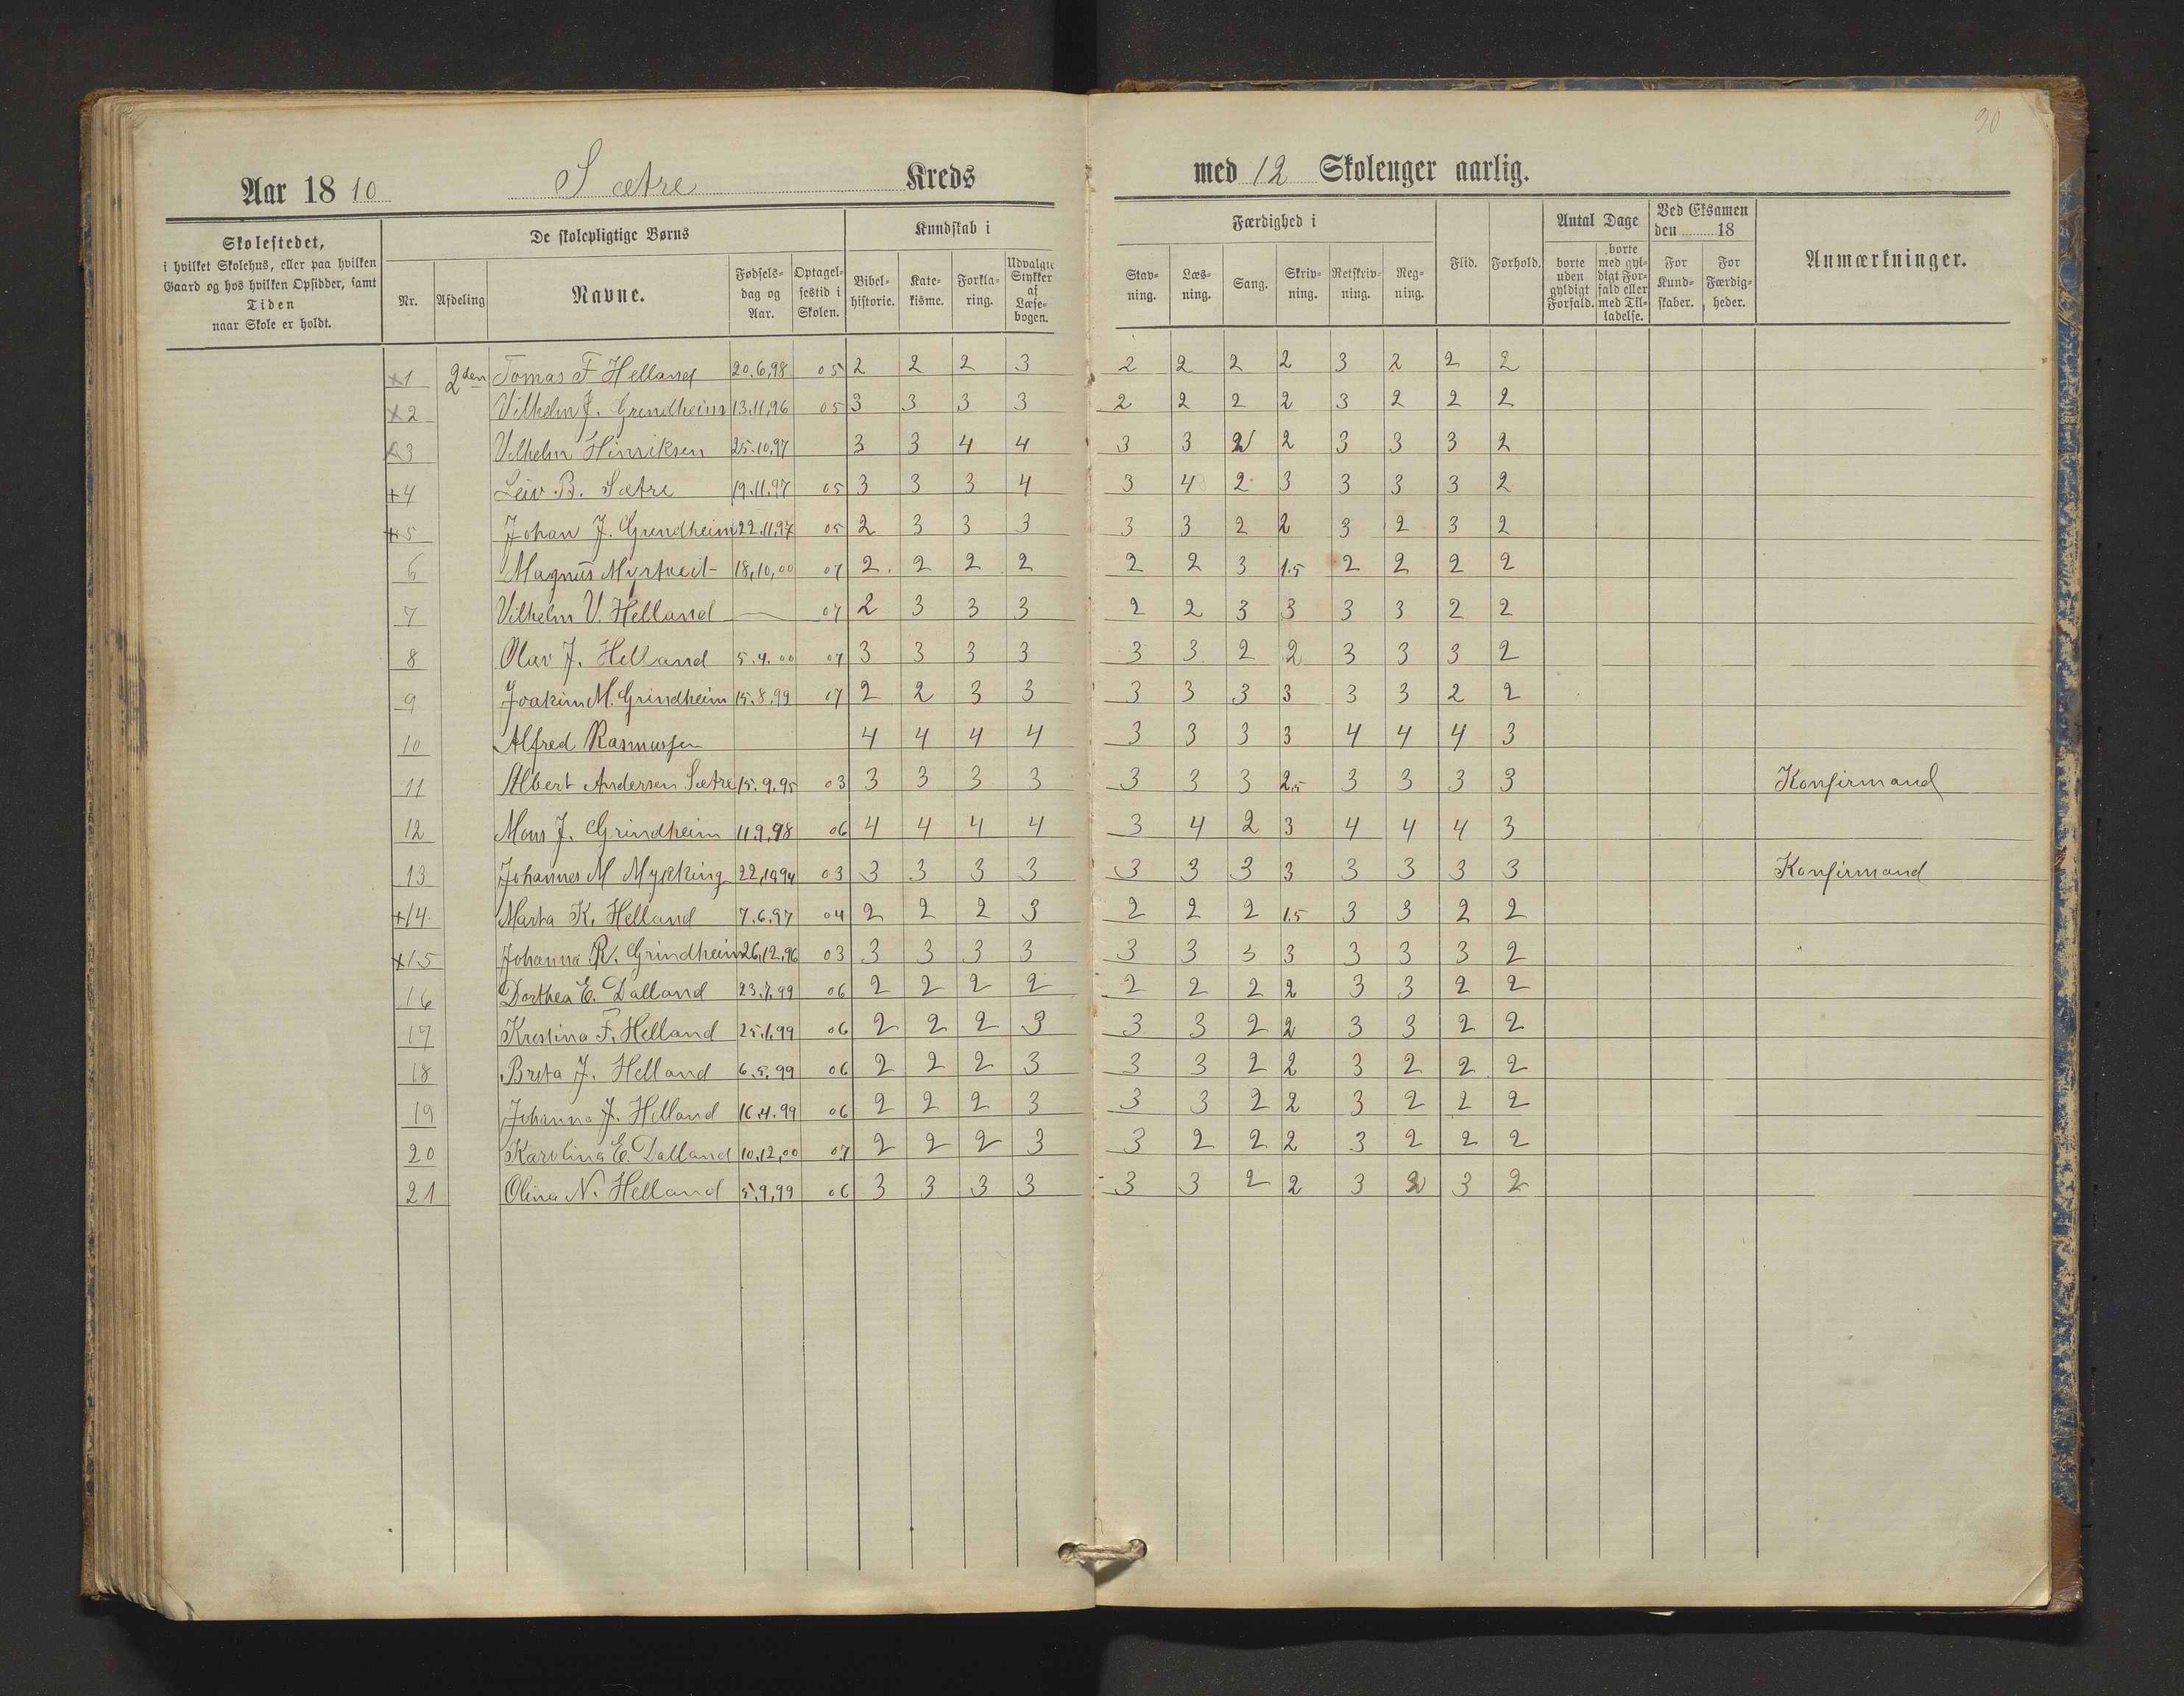 90
Aar 1810 Sætre Kreds med 12 Skolenger aarlig.
Skolestedet, i hvilket Skolehus, eller paa hvilken Gaard og hos hvilken Opsidder, samt Tiden naar Skole er holdt.
De skolepligtige Børns
Nr. Afdeling Navne. Fødsels-dag og Aar. Optagel-sestid i Skolen.
Kundskab i
Bibel-historie. Kate-kisme. Forkla-ring. Udvalgte Stykker af Læse-bogen.
Færdighed i
Stav-ning. Læs-ning. Sang. Skriv-ning. Retskriv-ning. Reg-ning.
Flid. Forhold.
Antal Dage
borte uden gyldigt Forfald. borte med gyl-digt For-fald eller med Til-ladelse.
Ved Eksamen den 18
For Kund-skaber. For Færdig-heder.
Anmærkninger.
x1 2den Tomas F Helland 20.6,98 05 2 2 2 3 2 2 2 2 3 2 2 2
x2 Vilhelm J. Grindheim 13.11,96 05 3 3 3 3 2 2 2 2 3 2 2 2
3 Vilhelm Hinriksen 25.10,97 3 3 4 4 3 3 2 2 3 3 3 2
+4 Leiv B. Sætre 19.11.97 05 3 3 3 4 3 4 2 3 3 3 3 2
+5 Johan J. Grindheim 22.11,97 05 2 3 3 3 3 3 2 2 3 2 3 2
6 Magnus Myrtveit 18,10,00 07 2 2 2 2 2 2 3 1.5 2 2 2 2
7 Vilhelm V. Helland — 07 2 3 3 3 2 2 3 3 3 3 2 2
8 Olav J. Helland 5.4.00 07 3 3 3 3 3 3 2 2 3 3 3 2
9 Joakim M. Grindheim 15.8,99 07 2 2 3 3 3 3 3 3 3 3 2 2
10 Alfred Rasmussen 4 4 4 4 3 3 3 3 4 4 4 3
11 Albert Andersen Sætre 15.9.95 03 3 3 3 3 3 3 3 2,5 3 3 3 3 Konfirmand
12 Mons J. Grindheim 11.9,98 06 4 4 4 4 3 4 2 3 4 4 4 3
13 Johannes M Mykking 22,10,94 03 3 3 3 3 3 3 3 3 3 3 3 3 Konfirmand
+14 Marta K. Helland 7.6.97 04 2 2 2 3 2 2 2 1.5 3 3 2 2
x15 Johanna R. Grindheim 26,12,96 03 3 3 3 3 3 3 3 3 3 3 3 2
16 Dorthea E. Dalland 23.7.99 06 2 2 2 2 2 2 2 2 3 3 2 2
17 Krestina F. Helland 25.1.99 06 2 2 2 3 3 3 2 2 3 3 2 2
18 Breta J. Helland 6.5.99 06 2 2 2 3 3 3 2 2 3 2 2 2
19 Johanna J. Helland 16.4.99 06 2 2 2 3 3 3 2 2 3 2 2 2
20 Karolina E. Dalland 10,12,00 07 2 2 2 3 3 2 2 2 3 2 2 2
21 Olina N. Helland 5.9,99 06 3 3 3 3 3 3 2 2 3 2 3 2